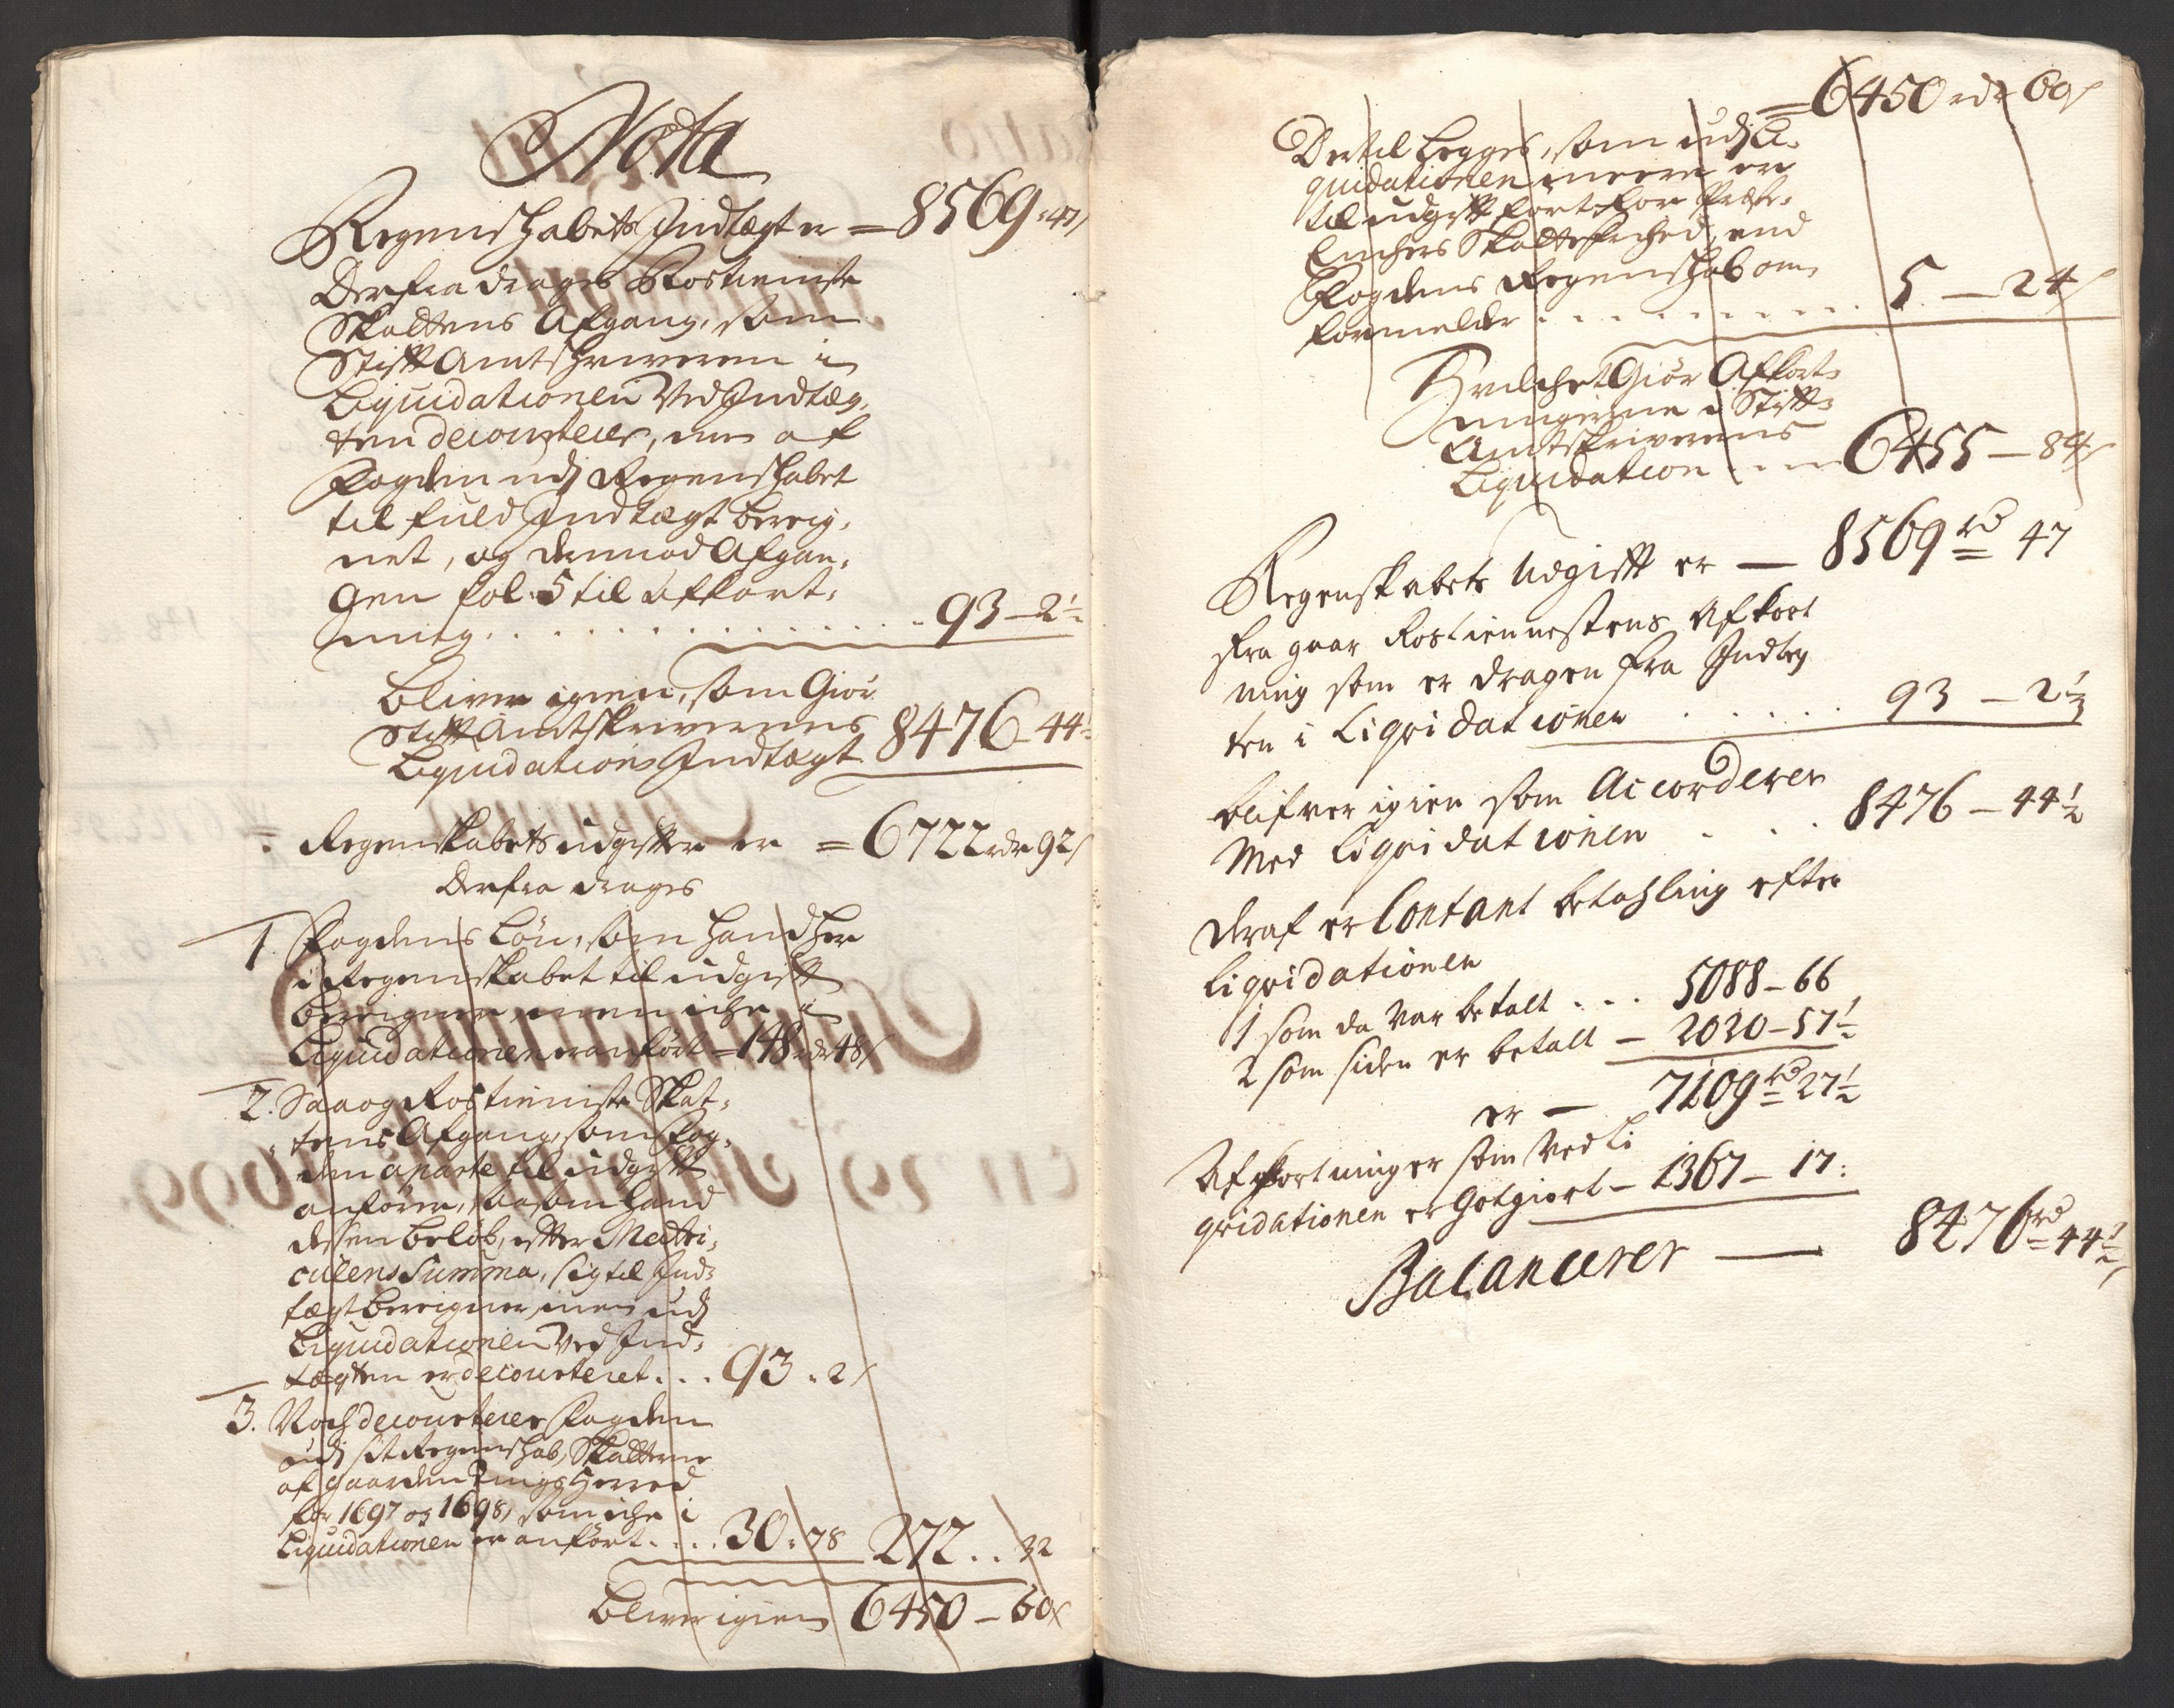 Nota
Regenskabets Indtægt er = 8569 : 47
Derfra drages Rostieniste
Skattens Afgang, som
StifftAmtskriveren i
Liquidationen Ved Indtæg,
ten decourterer, men af
Fogden udj Regenskabet
til fuld Indtægt bereig,
net, og dermod Afgan,
gen fol. 5 til afkort,
ning . . . . . . . . . . . . . 93 – 2½
bliver igien, som Giør
StifftAmtskriverens
Liquidations Indtægt 8476 – 44½
Regenskabets udgiffter er = 6722 rdr 92 s
Derfra drages
1. Fogdens Løn, som hand her
i Regenskabet til udgifft
bereigner, men iche i
Liquidationen er anført = 148 rdr 48 s
2. Saa og Rostieniste Skat,
tens Afgang, som Fog,
den aparte til udgifft
anfører, saasom hand
dessen beløb, efter Matri,
culens Summa, sig til Ind,
tægt bereigner, men udj
Liquidationen Ved Ind,
tægten er decourteret . . . 93 . 2 s
3. Noch decourterer Fogden
udj sit Regenskab, Skatterne
af gaarden Herred
for 1697 og 1698, som iche i
Liquidationen er anført . . . . 30 : 78 272 . . 32
bliver igien 6450 – 60 s
= 6450 rdr 60 s
Dertil Legges, som udj Li,
quidationen meere er
til udgifft ført for
Skattefrihed, end
Fogdens Regenskab om,
formelder . . . . . . . . . . . 5 – 24 s
Hvilchet Giør Afkort,
ningerne i Stifft,
Amtskriverens
Liquidation . . . 6455 – 84 s
Regenskabets Udgifft er — 8569 rd 47
fra gaar Rostiennestens Afkort
ning som er dragen fra Indteg
ten i Liqvidationen . . . . . . 93 – 2½
blifver igien som Accorderer
Med Liqvidationen . . . 8476 – 44½
deraf er Contant betahling efter
Liqvidationen
1 som da Var betalt . . . 5088 – 66
2 som siden er betalt – 2020 – 57½
er — 7109 rd 27½
Afkortninger som Ved Li
qvidationen er Gotgiort – 1367 – 17 :
Balancerer — 8476 rd 44½